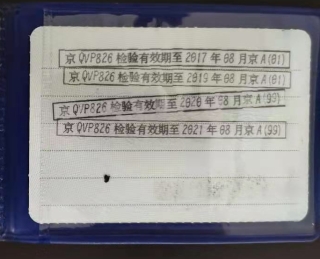 京QVP826检验有效期至2017年08月京A(01)
京QVP826检验有效期至2019年08月京A(01)
京QVP826检验有效期至2020年08月京A(99)
京QVP826检验有效期至2021年08月京A(99)